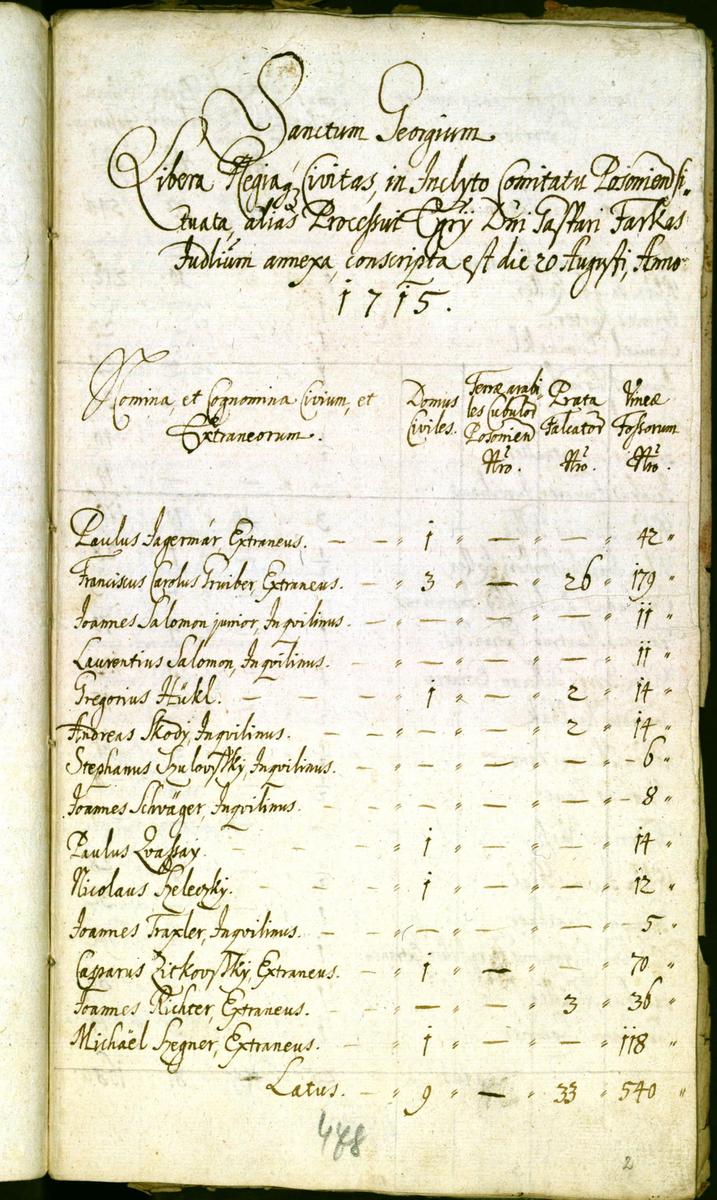 Sanctum Georgium
Libera Regiaq Civitas, in Inclyto Comitatu Posoniensi si-
tuata, alias Processui Egrÿ Dni Gaspari Farkas
Judlium annexa, conscripta est die 20 Augusti, Anno
1715.
Nomina, et Cognomina Civium, et Extraneorum.
Domus Civiles.
Terræ arabiles Cubulor Posonien Nro.
Prata Falcator Nro.
Vineæ Fossorum Nro.
Paulus Jagermár Extraneus. — — " 1 " — " — " 42 "
Franciscus Carolus Gruiber Extraneus. — " 3 " — " 26 " 179 "
Joannes Salomon junior, Inqvilinus. — " — " — " — " 11 "
Laurentius Salomon, Inqvilinus. — " — " — " — " 11 "
Gregorius Hükl. — — — " 1 " — " 2 " 14 "
Andreas Skody, Inqvilinus. — — " — " — " 2 " 14 "
Stephanus Szulovszky, Inqvilinus. — " — " — " — " 6 "
Joannes Schväger, Inqvilinus. — " — " — " — " 8 "
Paulus Qvassay. — — — " 1 " — " — " 14 "
Nicolaus Szeleczky. — — " 1 " — " — " 12 "
Joannes Traxler, Inqvilinus. — " — " — " — " 5 "
Casparus Zitkovszky, Extraneus. — " 1 " — " — " 70 "
Joannes Richter, Extraneus. — " — " — " 3 " 36 "
Michäel Szegner, Extraneus. — " 1 " — " — " 118 "
Latus. — " 9 " — " 33 " 540 "
478
2